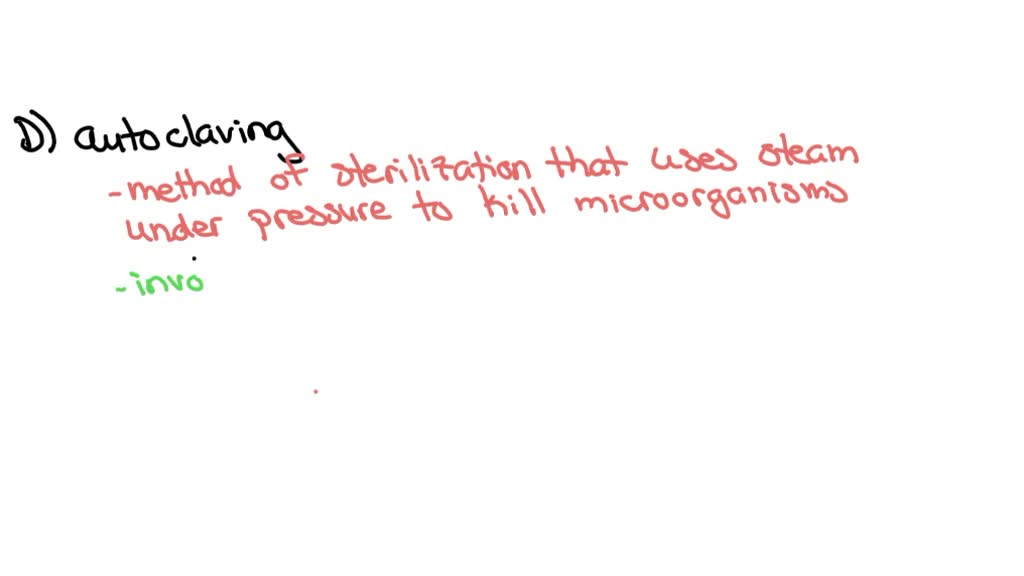 D) autoclaving
- method of sterilization that uses steam
under pressure to kill microorganisms
- invo